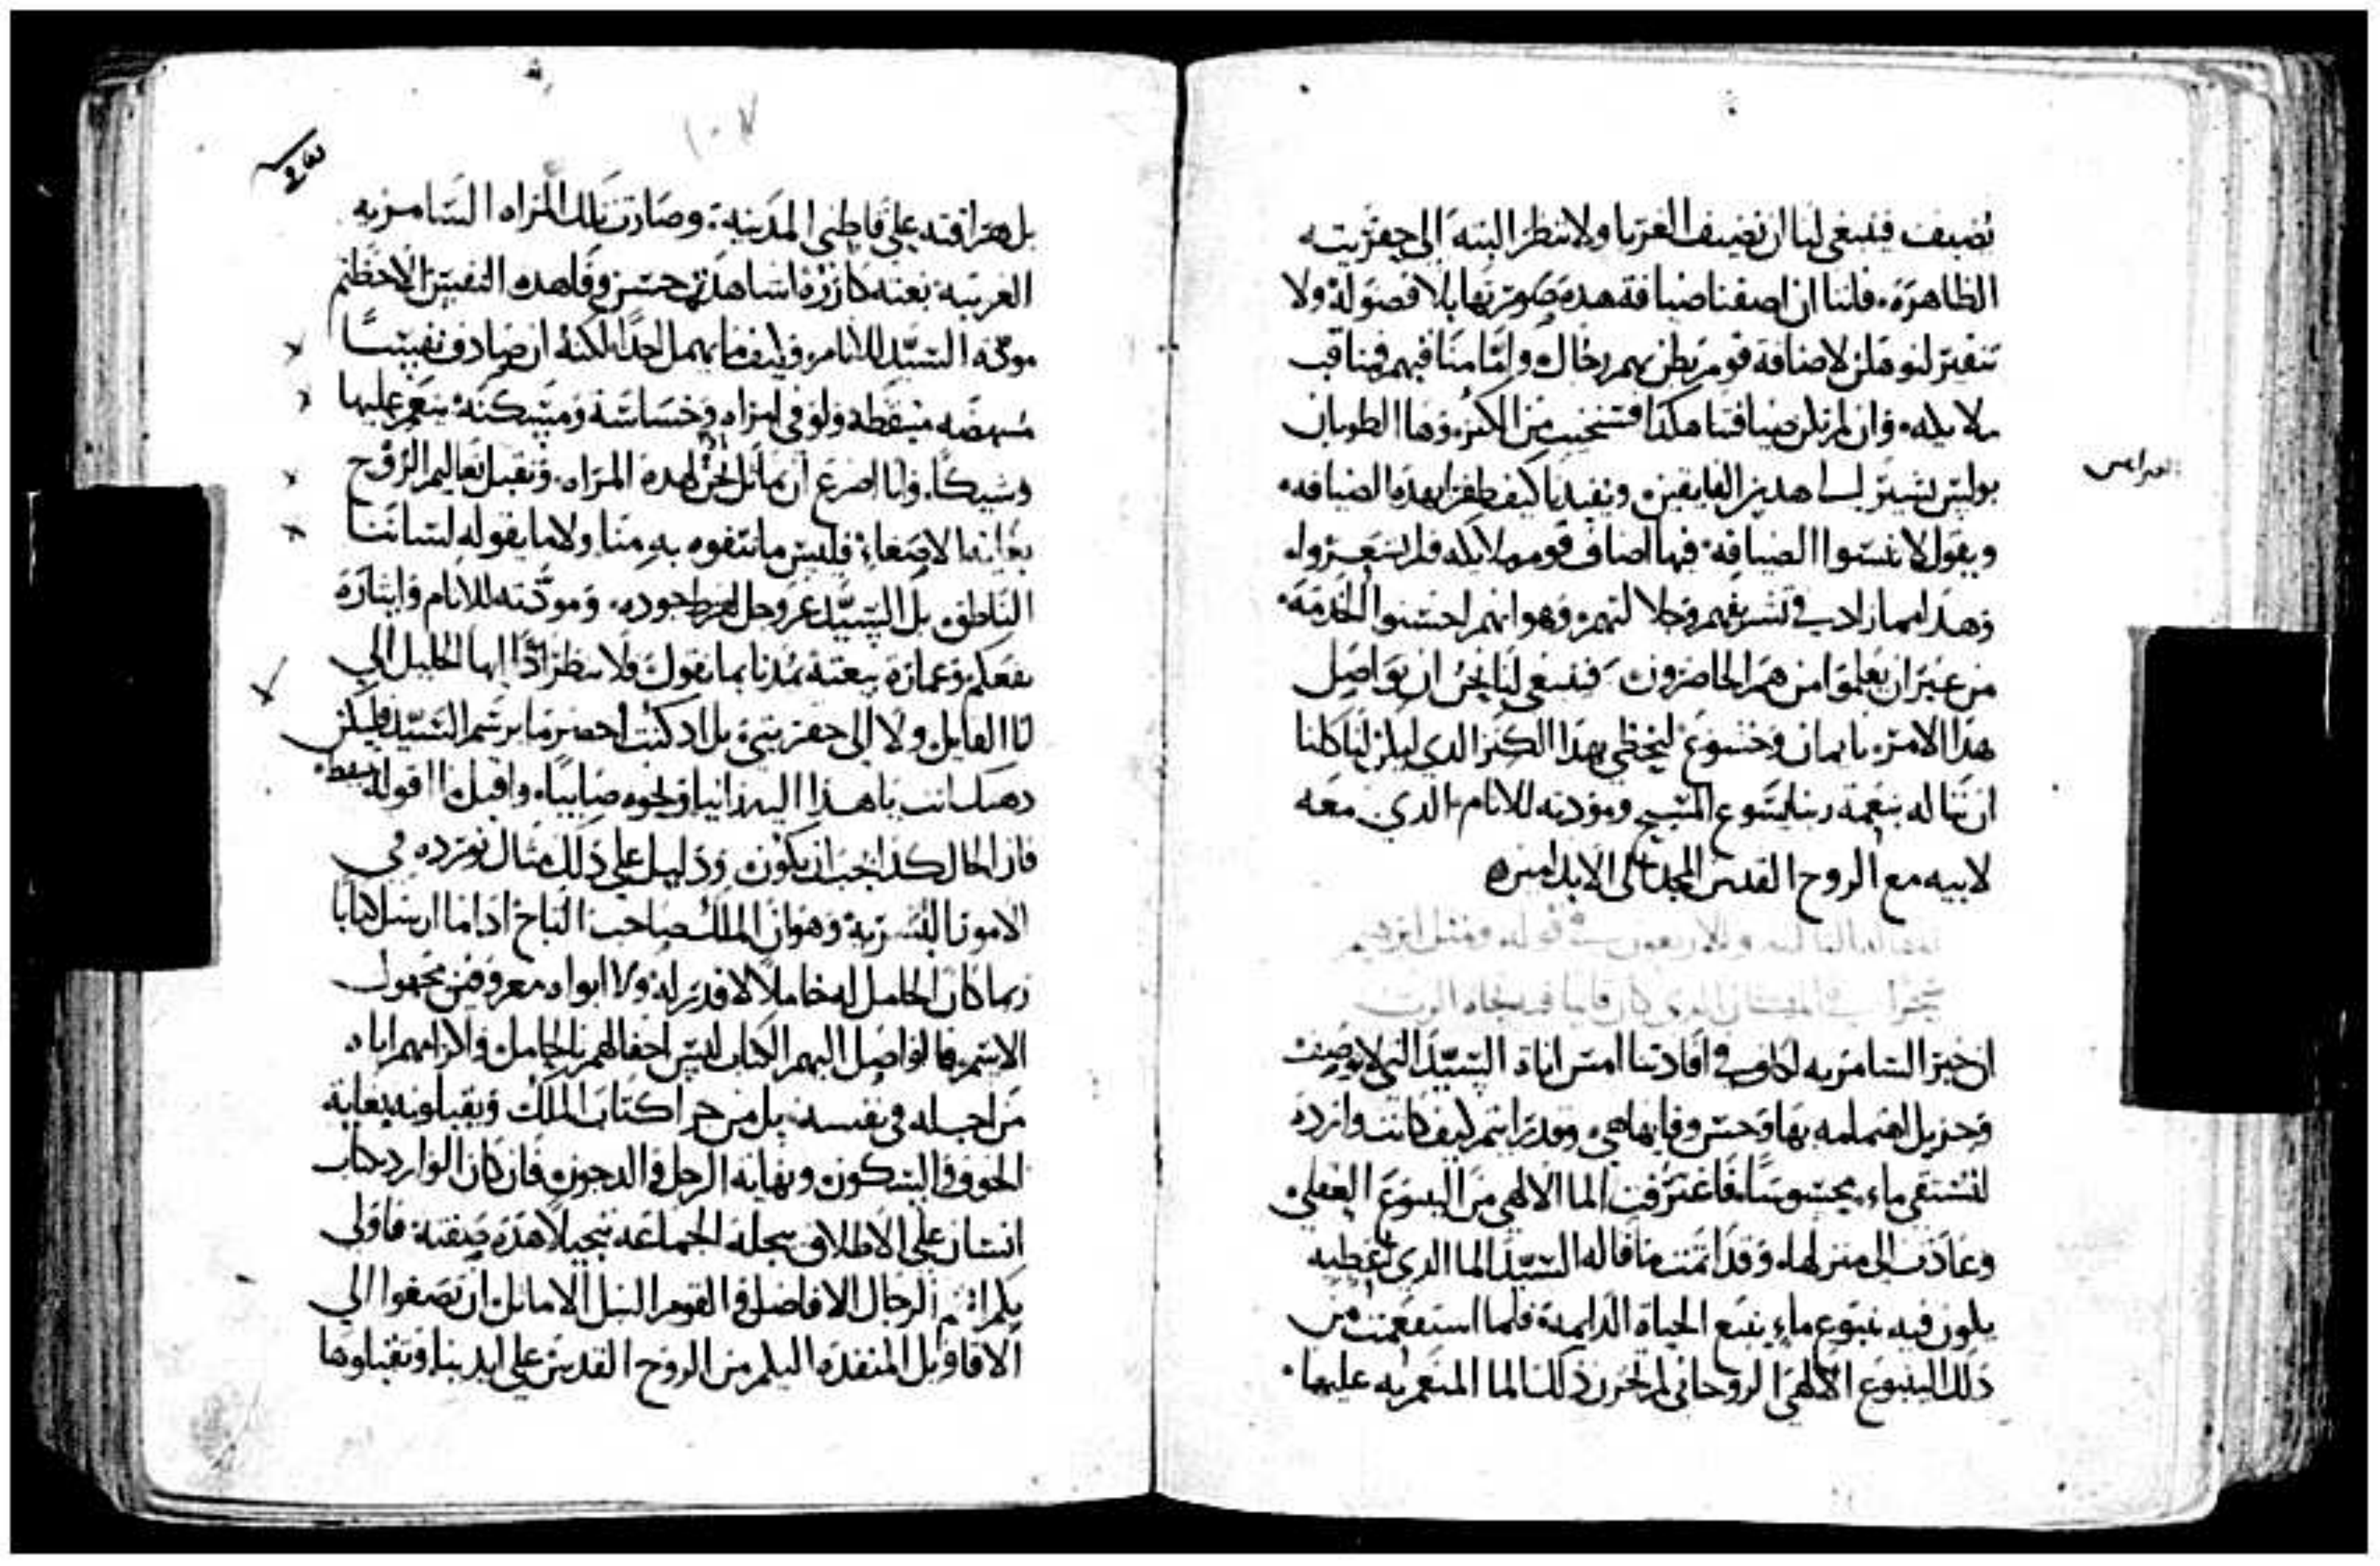 نضيف فينبغي لنا ان نضيف الغربا ولا ننظر البتة الى حقريته
الظاهرة فلننا ان اضفنا ضيافة هذه صورتها بلا فصوله ولا
لن لاضافة قوم يظن بهم رجال وامامنا فيهم مناقب
ملايكه وان لم تكن ضيافتنا هكذا من الكنز وها الطوبان
بولس يشير لسا هدين الفايقين ويفيدنا كيف ظفرا بهذه الضيافه
ويقول لا تنسوا الضيافة فبها اضاف قوم ملايكه فلم يشعروا
وهذا مما زاد في تشريفهم وجلالتهم وهو انهم احسنوا الخدمة
من غير ان يعلموا من هم الحاضرون فينبغي لنا نحن ان نواصل
هذا الامر بايمان وخشوع ليحظى بهذا الكنز الذي ليكن لنا كلنا
ان نناله بنعمة ربنا يسوع المسيح ومودته للانام الذي معه
لابيه مع الروح القدس المجد الى الابد امين
المقاله الثالثه والاربعون في قوله ومثل ابرهيم
في المكان الذي كان قايما فيه تجاه الرب
ان خبر السامريه لكاف في افادتنا امس اناة السيد التي لا توصف
وجزيل اهتمامه بها وحسن وفايها هي وقد رايتم كيف كانت وارده
لتستقي ماء محسوسا فاغترفت الما الالهي من الينبوع العقلي
وعادت الى منزلها وقد اتمت ما قاله السيد الما الذي اعطيه
يكون فيه ينبوع ماء ينبع الحياة الدايمة فلما استفعمت من
ذلك الينبوع الالهي الروحاني لم تحزن ذلك الما المنعم به عليها
العرايس
١٠٧
بل هراقته على قاطني المدينة وصارت تلك المراه السامريه
الغريبة بغتة كارزة اشاهدتم حسن وفا هذه النفس الاحظتم
مودة السيد للانام وكيف ما يهمل احدا لكنه ان صادف نفسا
مستيقظه ولو في امراه وخساسة ومسكنة ينعم عليها
وشيكا وانا اضرع ان نماثل نحن لهذه المراه ونقبل تعاليم الروح
بغاية الاصغاء فليس ما نتفوه به منا ولا ما يقوله لساننا
الناطق بل السيد عز وجل لفرط جوده ومودته للانام وايثاره
نفعكم وعمارة بيعته يمدنا بما نقول فلا تنظر اذا ايها الخليل الي
انا القايل ولا الى حقريتي بل اذ كنت احضر ما برسم السيد فليكن
ذهنك انت يا هذا اليه رانيا ونحوه صابيا واقبل ما اقوله بيقظه
فان الحال كذا يجب ان يكون ودليل على ذلك مثال نورده في
الامور البشرية وهو ان الملك صاحب التاج اذا ما ارسل كتابا
ربما كان الحامل له خاملا لا قدر له ولا ابواه معروفين مجهول
الاسم فالواصل اليهم الكتاب ليس احفالهم بالحامل واكرامهم اياه
من اجله في نفسه بل من جرا كتاب الملك ويقبلونه بغاية
الخوف والسكون ونهاية الوجل والدجون فان كان الوارد بكتاب
انسان على الاطلاق يجله الجماعه تبجيلا هذه صفته فاولى
بكم انتم الرجال الافاضل والقوم النبل الاماثل ان تصغوا الى
الاقاويل المنفذه اليكم من الروح القدس على ايدينا وتقبلوها